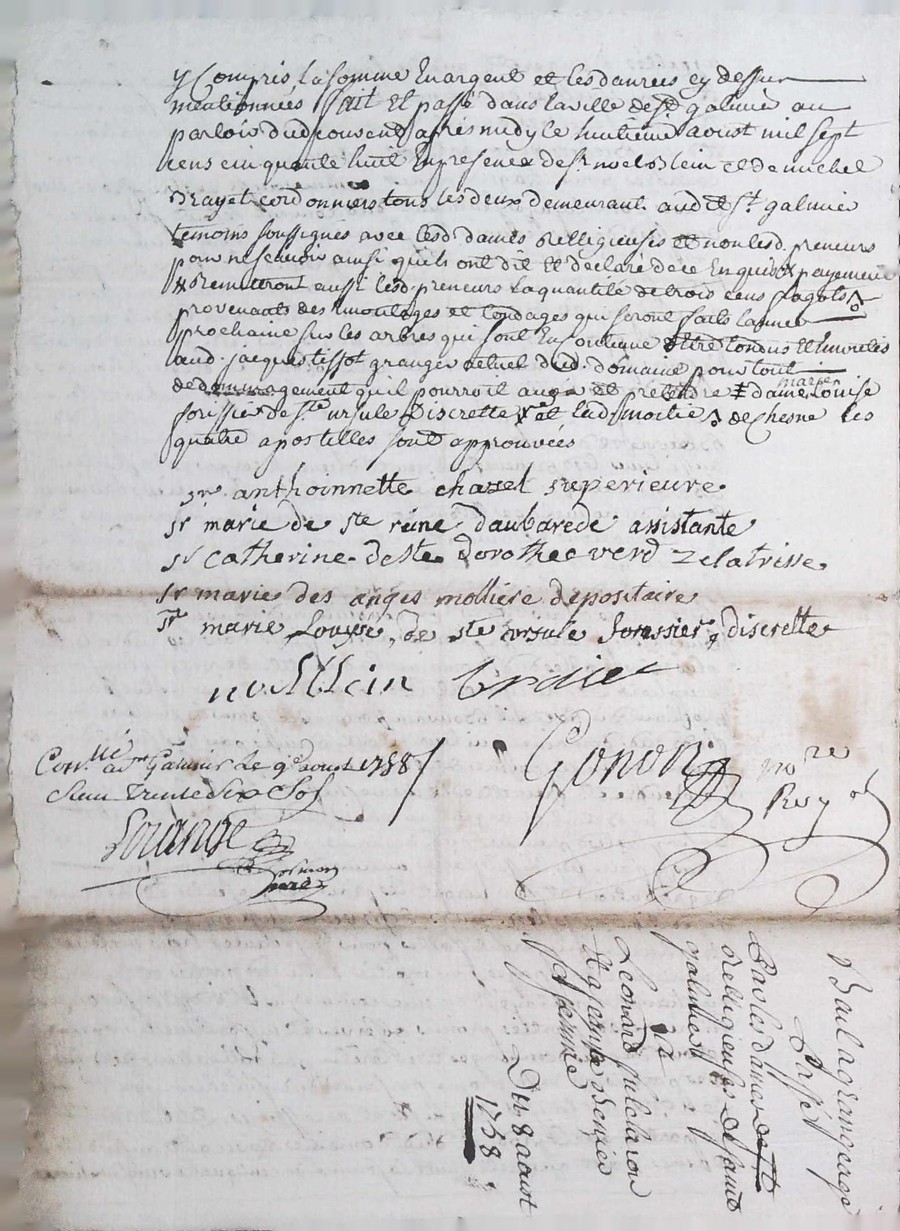 y Compris la somme En argent et les danrées cy dessus
mentionnées fait Et passé dans la ville de St galmier au
parloir dud couvent apres midy le huitieme aoust mil sept
cens cinquante huit En presence de sr noel oslein et de michel
Brayet cordonniers tous les deux demeurant aud St galmier
temoins soussignés avec lesd dames Relligieuses et non lesd. preneurs
pour ne scavoir ainsi quils ont dit Et declaré de ce Enquis payement
Remettront aussi lesd. preneurs la quantité de trois cens fagots
provenants des et tondages qui seront faits lannee
prochaine sur les arbres qui sont En Etre tondus Et
aud. jacques tissot granger actuel dud. domaine pour tout
dedommagement quil pourroit avoir et pretendre ‡ dame marie Louise
forissier de Ste ursule Discrette et lad moitié de Chesne les
quatre apostilles sont approuvées
sr anthoinnette chazel superieure
sr marie de ste reine daubarede assistante
sr catherine de ste dorothee verd zelatrisse
sr marie des anges molliere depositaire
sr marie Louyse, de ste ursule forissier, discrette
noel lein braiet
Conllé a St Galmier le 9e aoust 1758
Gonon nore
Royal
trente six sols
Bail a grangeage
Passé
Par les dames
relligieuses de saint
galmier
a
Leonard
St galmier
Du 8 aoust
1758